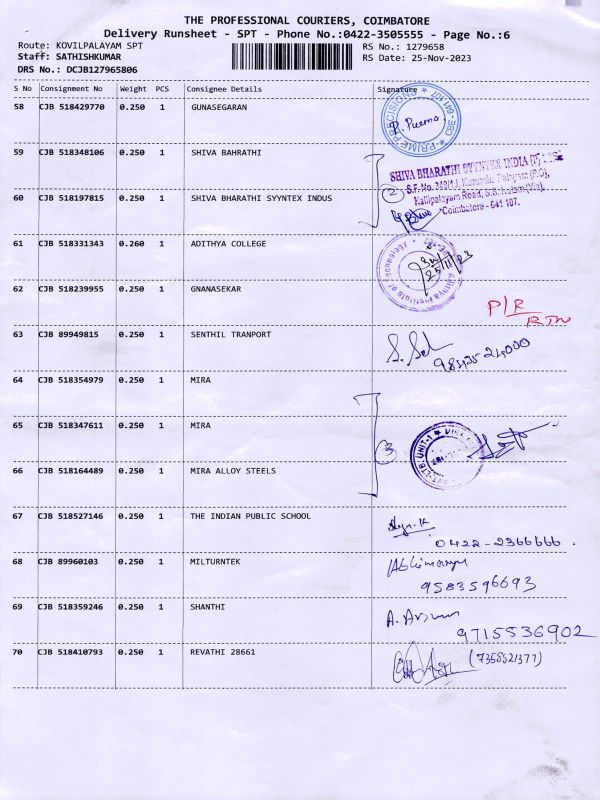 THE PROFESSIONAL COURIERS, COIMBATORE
Delivery Runsheet - SPT - Phone No.:0422-3505555 - Page No.:6
Route: KOVILPALAYAM SPT
RS No.: 1279658
Staff: SATHISHKUMAR
RS Date: 25-Nov-2023
DRS No.: DCJB127965806
S No Consignment No Weight PCS Consignee Details Signature
58 CJB 518429770 0.250 1 GUNASEGARAN
PRIME PRECISIONS
CBE - 641 107
59 CJB 518348106 0.250 1 SHIVA BAHRATHI
SHIVA BHARATHI SYYNTEX INDIA (P)
S.F. No. 349/1J, Kurumba Palayam (P.O),
60 CJB 518197815 0.250 1 SHIVA BHARATHI SYYNTEX INDUS
2
Kallipalayam Road, S.S. Kulam (Via),
Coimbatore - 641 107.
61 CJB 518331343 0.260 1 ADITHYA COLLEGE
25/11/23
62 CJB 518239955 0.250 1 GNANASEKAR
P/R
RTN
63 CJB 89949815 0.250 1 SENTHIL TRANPORT
64 CJB 518354979 0.250 1 MIRA
65 CJB 518347611 0.250 1 MIRA
3
66 CJB 518164489 0.250 1 MIRA ALLOY STEELS
67 CJB 518527146 0.250 1 THE INDIAN PUBLIC SCHOOL
0422-2366666.
68 CJB 89960103 0.250 1 MILTURNTEK
9583596693
69 CJB 518359246 0.250 1 SHANTHI
9715536902
70 CJB 518410793 0.250 1 REVATHI 28661
(7358821377)